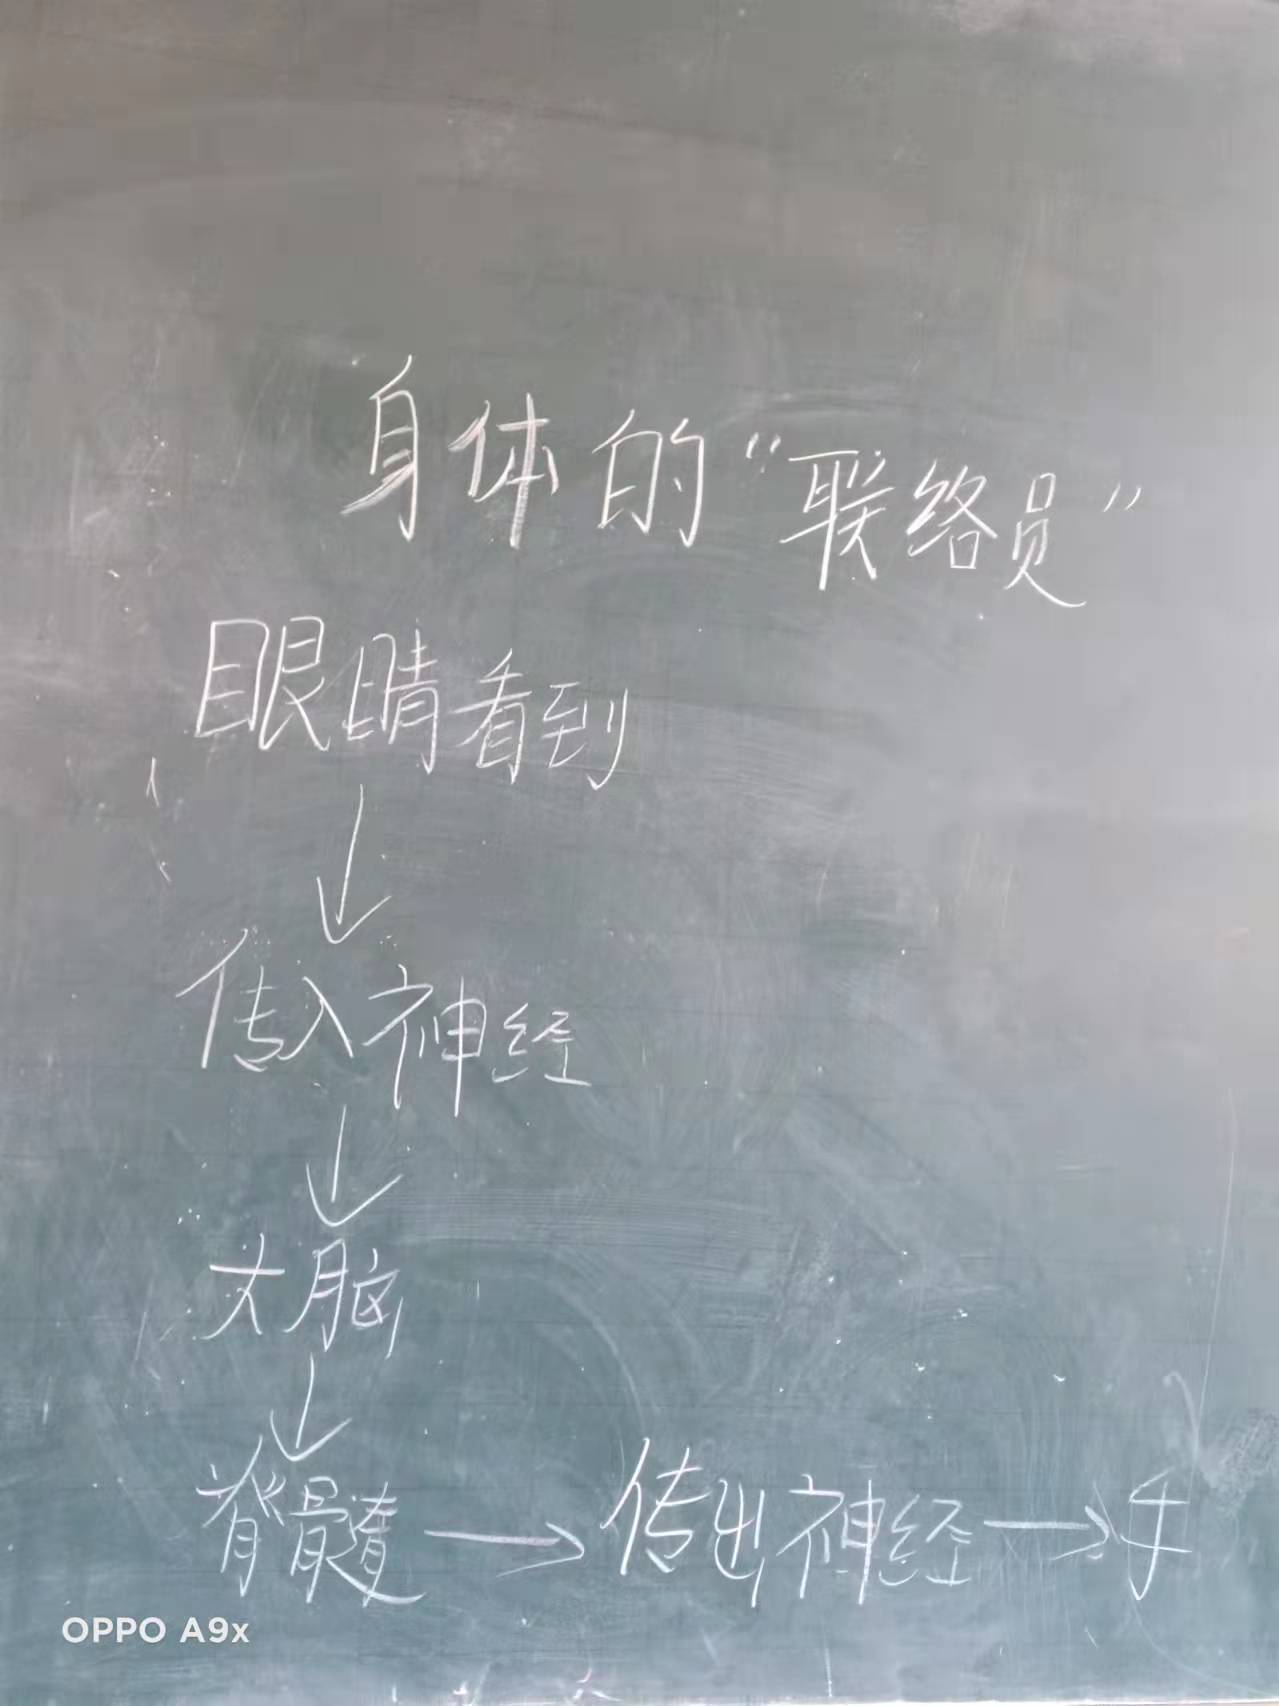 身体的“联络员”
眼睛看到
↓
传入神经
↓
大脑
↓
脊髓→传出神经→手
OPPO A9x